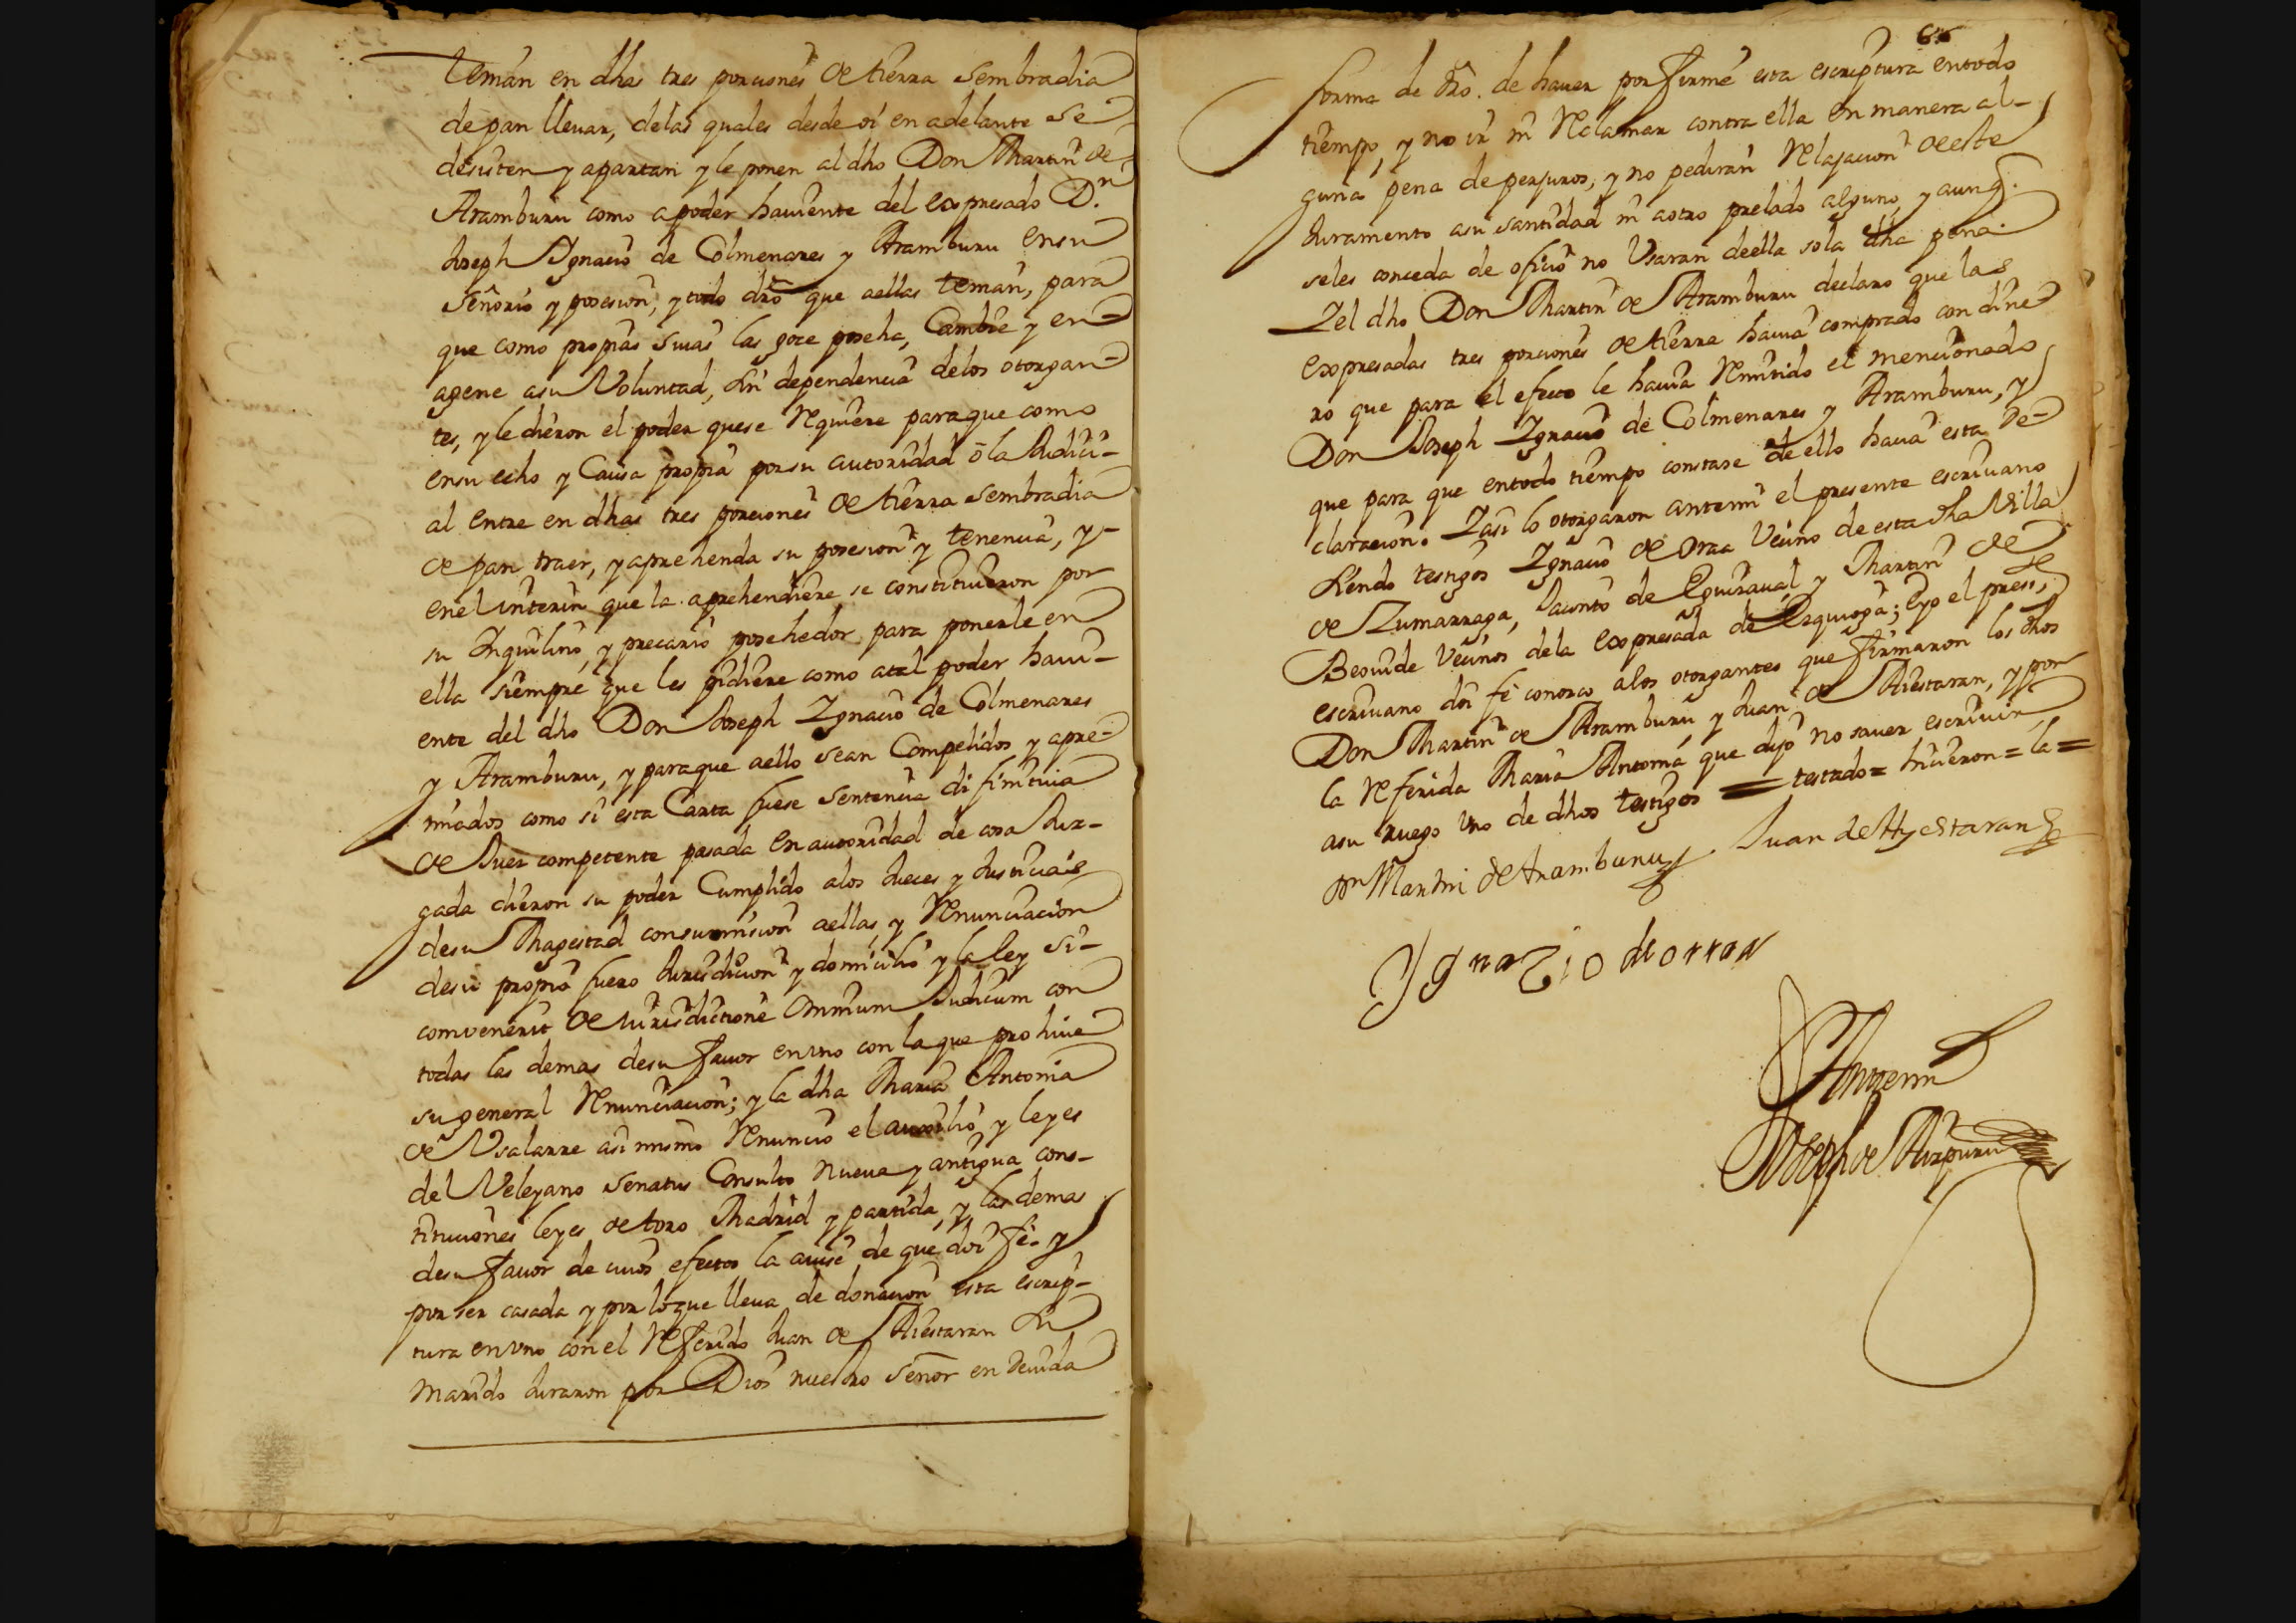 tenian en dhas tres porciones de tierra sembradia
de pan lleuar, delas quales desde oi en adelante se
desisten y apartan y le ponen al dho Don Martin de
Aramburu como a poder hauiente del expresado D.n
Joseph Ignacio de Colmenares y Aramburu ensu
señorio y posesion, y todo dro que aellas tenian, para
que como propias suias las goze poseha, Cambie y en=
agene asu Voluntad, sin dependencia delos otorgan=
tes, y le dieron el poder quese Requiere paraque como
ensu echo y Causa propia porsu autoridad ô la Judici-
al entre en dhas tres porciones de tierra sembradia
de pan traer, y aprehenda su posesion y tenencia, y-
enel interin que la aprehendiere se constituieron por
su Inquilino, y precario posehedor para ponerle en
ella siempre que les pidiere como atal poder haui-
ente del dho Don Joseph Ignacio de Colmenares
y Aramburu, y paraque aello sean Compelidos y apre=
miados como si esta Carta fuese sentencia difinitiua
de Juez competente pasada en autoridad de cosa Juz-
gada dieron su poder Cumplido alos Jueces y Justicias
desu Magestad consumision aellas, y Renunciacion
desu propio fuero Jurisdicion y domicilio y la ley si-
convenerit de iurisdictione Omnium Judicum con
todas las demas desu fauor en vno con laque prohiue
su general Renunciacion; y la dha Maria Antonia
de Vsalarre asi mismo Renuncio el auxilio, y leyes
del Veleyano senatus Consulto nueua y antigua cons-
tituciones leyes de toro Madrid y partida, y las demas
desu fauor de cuios efectos la auise de que doi fe- y
por ser casada y por loque lleua de donacion esta escrip-
tura en vno con el Referido Juan de Aiestaran su
marido Juraron por Dios nuestro Señor en deuida
66
forma de dro. de hauer por firme esta escriptura entodo
tiempo, y no ir ni Reclamar contra ella en manera al-
guna pena de perjuros, y no pediran Relajacion de este
Juramento asu santidad ni aotro prelado alguno, y aunq.
seles conceda de oficio no Vsaran deella sola dha pena.
I el dho Don Martin de Aramburu declaro que las
expresadas tres porciones de tierra hauia comprado con dine
ro que para el efecto le hauia Remitido el mencionado
Don Joseph Ignacio de Colmenares y Aramburu, y
que para que entodo tiempo constase de ello hacia esta de=
claracion. I asi lo otorgaron antemi el presente escriuano
siendo testigos Ignacio de Oraa Vecino de esta dha Villa
de Zumarraga, Jacinto de Eguizaual y Martin de
Beouide Vecinos dela expresada de Ezquioga; Eyo el presste
escriuano doi fe conozco alos otorgantes que firmaron los dhos
Don Martin de Aramburu y Juan de Aiestaran, y por
la Referida Maria Antonia que dijo no sauer escriuir
asu ruego vno de dhos testigos = testado= hicieron= la=
Dn Martin de Aramburu Juan de Ayestaran
Ygnazio de orraa
Antemi
Joseph de Aizpuru